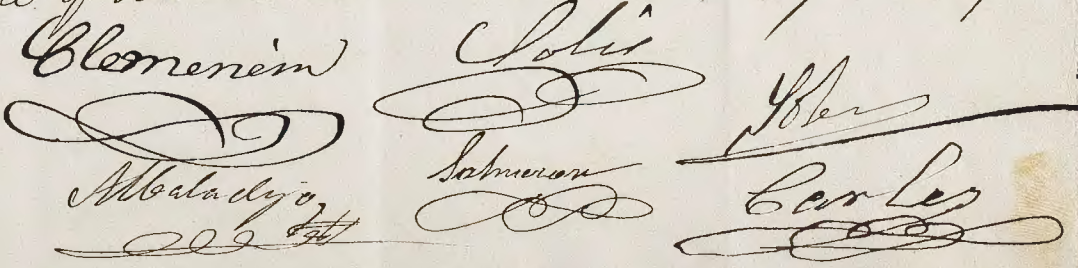 Clemencin Solis Soler
Albaladejo Salmeron Carles